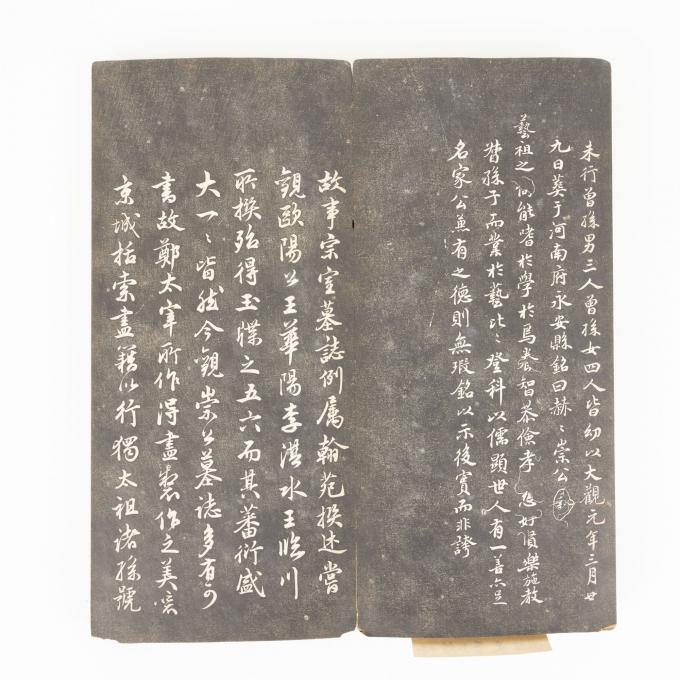 未行曾孫男三人曾孫女四人皆幼以大觀元年三月廿
九日葬于河南府永安縣銘曰赫〻崇公
藝祖之 能嗜於學於馬養智恭儉孝 好賢樂施教
誉孫子而業於藝比〻登科以儒顯世人有一善六足
名家公兼有之德則無瑕銘以示後實而非誇
故事宗室墓誌例属翰苑撰述嘗
觀歐陽公王華陽李淇水王臨川
所撰殆得玉牒之五六而其蕃衍盛
大一〻皆然今觀崇公墓誌多有可
書故鄭太宰所作得盡製作之美
京城括索盡籍以行獨太祖諸孫號